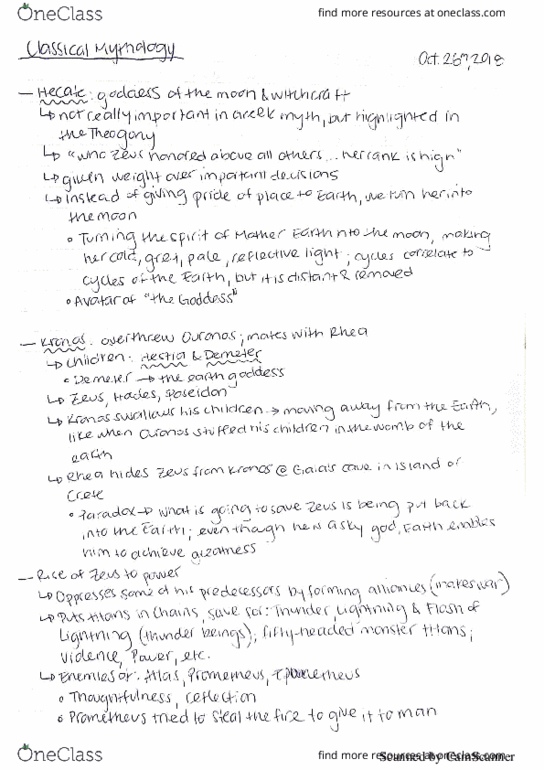 OneClass find more resources at oneclass.com
Classical Mythology
Oct. 26th, 2018
— Hecate: goddess of the moon & witchcraft
↳ not really important in Greek myth, but highlighted in
the Theogony
↳ "who Zeus honored above all others... her rank is high"
↳ given weight over important decisions
↳ instead of giving pride of place to Earth, we turn her into
the moon
• Turning the spirit of Mother Earth into the moon, making
her cold, grey, pale, reflective light; cycles correlate to
cycles of the Earth, but it is distant & removed
• Avatar of "the Goddess"
— Kronos: overthrew Ouranos; mates with Rhea
↳ children: Hestia & Demeter
• Demeter → the earth goddess
↳ Zeus, Hades, Poseidon
↳ Kronos swallows his children → moving away from the Earth,
like when Ouranos stuffed his children in the womb of the
earth
↳ Rhea hides Zeus from Kronos @ Gaia's cave in island of
Crete
• Paradox → what is going to save Zeus is being put back
into the Earth; even though he is a sky god, Earth enables
him to achieve greatness
— Rise of Zeus to power
↳ Oppresses some of his predecessors by forming alliances (makes war)
↳ Puts titans in chains, save for: Thunder, Lightning & Flash of
Lightning (thunder beings); fifty-headed monster titans;
violence, Power, etc.
↳ Enemies of: Atlas, Prometheus, Epimetheus
• Thoughtfulness, reflection
• Prometheus tried to steal the fire to give it to man
OneClass find more resources at oneclass.com
Scanned by CamScanner